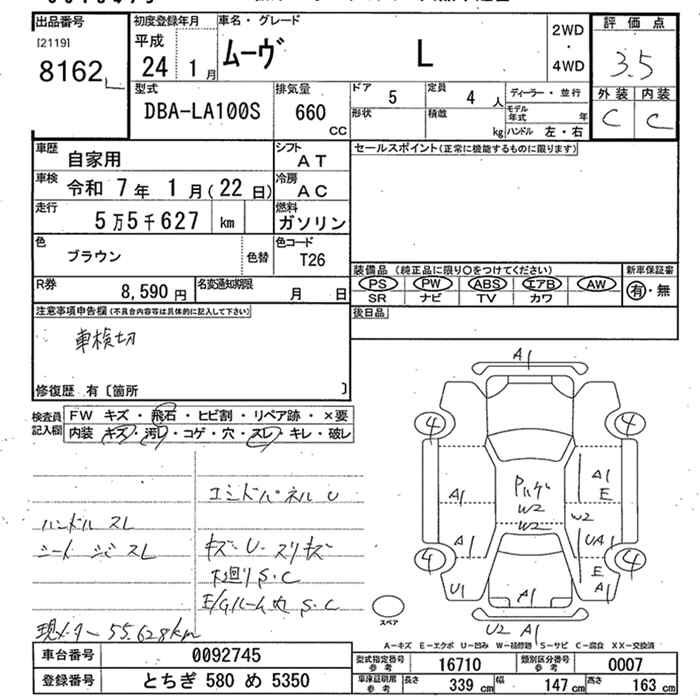 出品番号 初度登録年月 車名・グレード 評価点
[2119] 平成
8162 24 1月 ムーヴ L 2WD・4WD 3.5
型式 排気量 ドア 5 定員 4人 ディーラー・並行 外装 内装
DBA-LA100S 660 cc 形状 積載 kg モデル年式 年 C C
ハンドル 左・右
車歴 自家用 シフト AT セールスポイント(正常に機能するものに限ります)
車検 令和 7年 1月(22日) 冷房 AC
走行 5万5千627 km 燃料 ガソリン
色 ブラウン 色替 色コード T26
装備品 (純正品に限り○をつけてください) 新車保証書
PS PW ABS エアB AW 有・無
SR ナビ TV カワ
R券 8,590円 名変通知期限 月 日
後日品
注意事項申告欄(不具合内容等は具体的に記入して下さい)
車検切
修復歴 有〔箇所 〕
検査員記入欄 FW キズ・飛石・ヒビ割・リペア跡・×要
内装 キズ・汚レ・コゲ・穴・スレ・キレ・破レ
A1
4 4
A1 A1 E
W2 W2 W2
A1 UA1 E
4 4
U1 A1 A1
U2 A1
エンドパネル U
ハンドル スレ
シート スレ
キズ・U・スリキズ
下回り S.C
E/Gルーム内 S.C
現メーター 55,628km
スペア
A-キズ E-エクボ U-凹み W-補修跡 S-サビ C-腐食 XX-交換済
車台番号 0092745 型式指定番号 参考 16710 類別区分番号 参考 0007
登録番号 とちぎ 580 め 5350 車庫証明用 参考 長さ 339 cm 幅 147 cm 高さ 163 cm